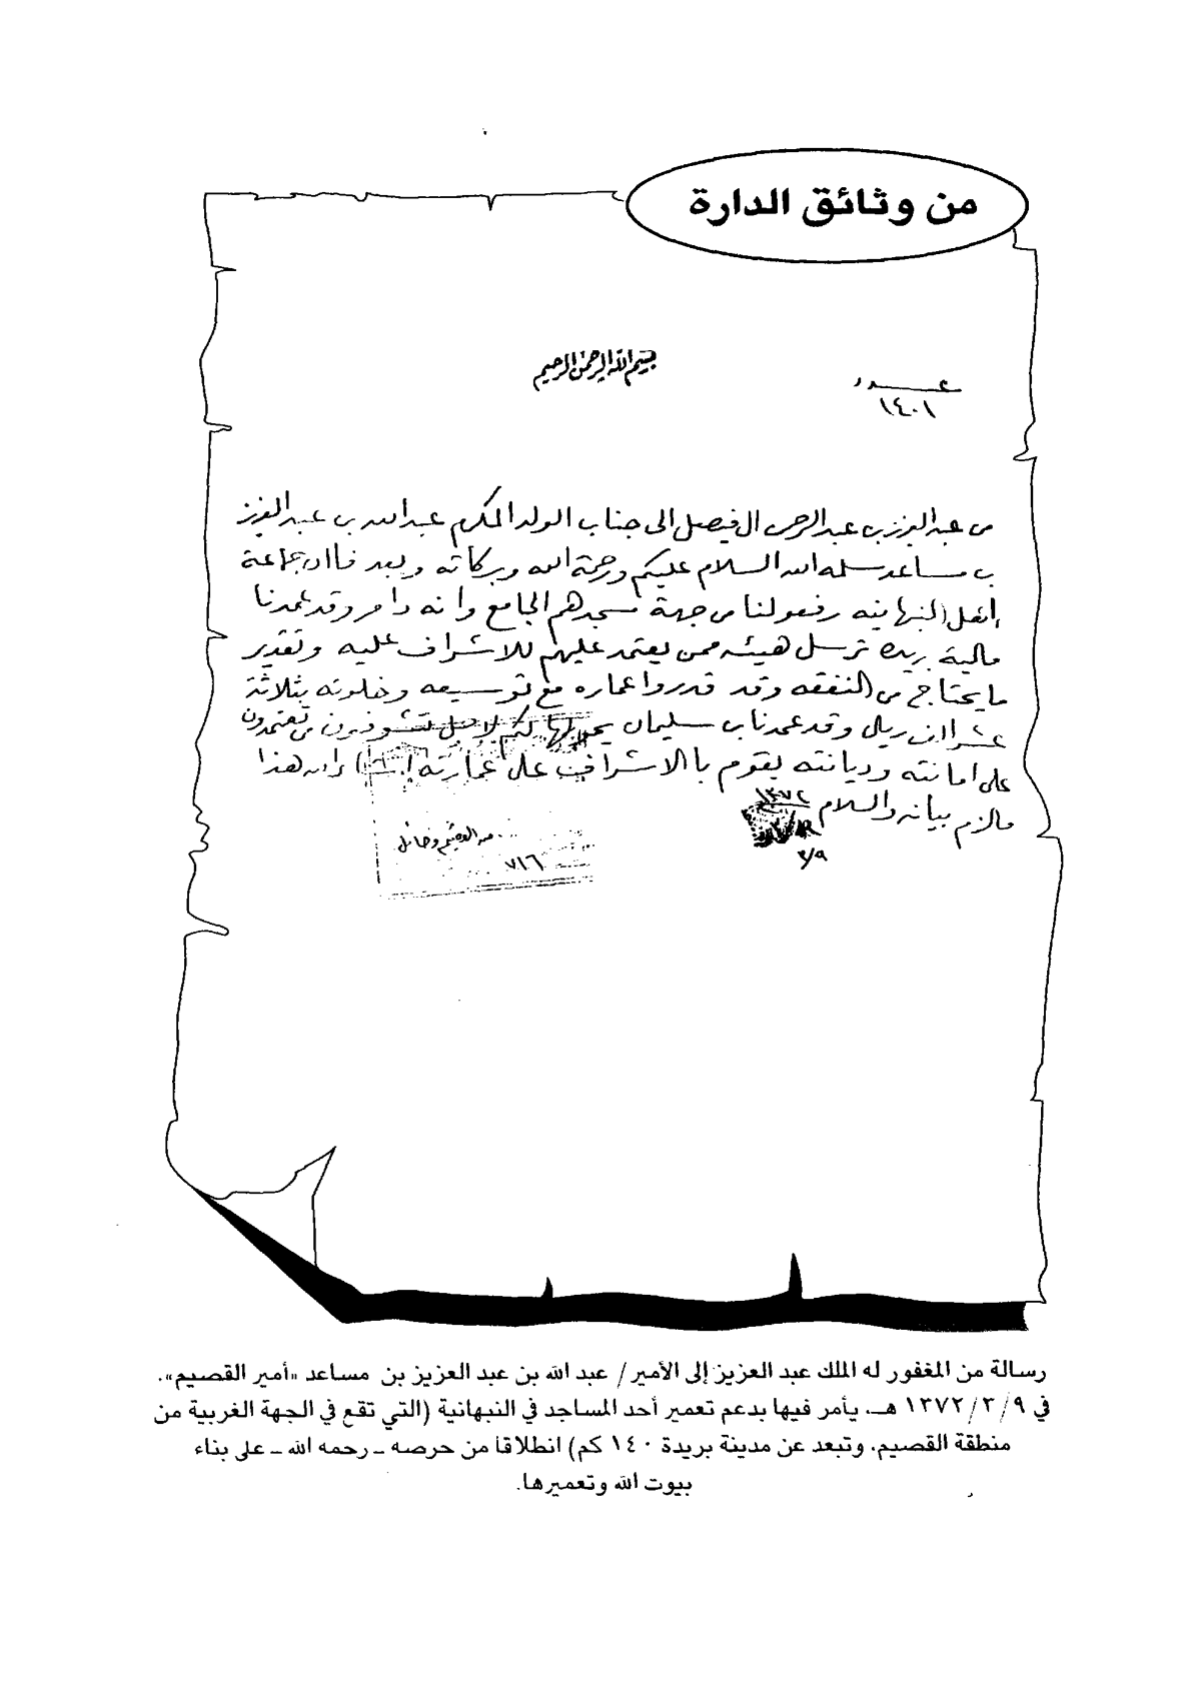 من وثائق الدارة
بسم الله الرحمن الرحيم
عدد
١٤٠١
من عبدالعزيز بن عبدالرحمن ال فيصل الى جناب الولد المكرم عبدالله بن عبدالعزيز
بن مساعد سلمه الله السلام عليكم ورحمة الله وبركاته وبعد فاان جماعة
اهل النبهانيه رفعوا لنا من جهة مسجدهم الجامع وانه دامر وقد عمدنا
مالية بريده ترسل هيئه ممن يعتمد عليهم للاشراف عليه وتقدير
مايحتاج من النفقه وقد قدروا عماره مع توسيعه وخلوته بثلاثة
عشر الف ريال وقد عمدنا بن سليمان يحولها لكم لاجل تشوفون من تعتمدون
على امانته وديانته يقوم باالاشراف على عمارته وانه هذا
مالزم بيانه والسلام ١٣٧٢
٣/٩
القصيم وحائل
٧١٦
رسالة من المغفور له الملك عبد العزيز إلى الأمير/ عبد الله بن عبد العزيز بن مساعد «أمير القصيم».
في ٩/ ٣/ ١٣٧٢ هـ. يأمر فيها بدعم تعمير أحد المساجد في النبهانية (التي تقع في الجهة الغربية من
منطقة القصيم. وتبعد عن مدينة بريدة ١٤٠ كم) انطلاقاً من حرصه ـ رحمه الله ـ على بناء
بيوت الله وتعميرها.